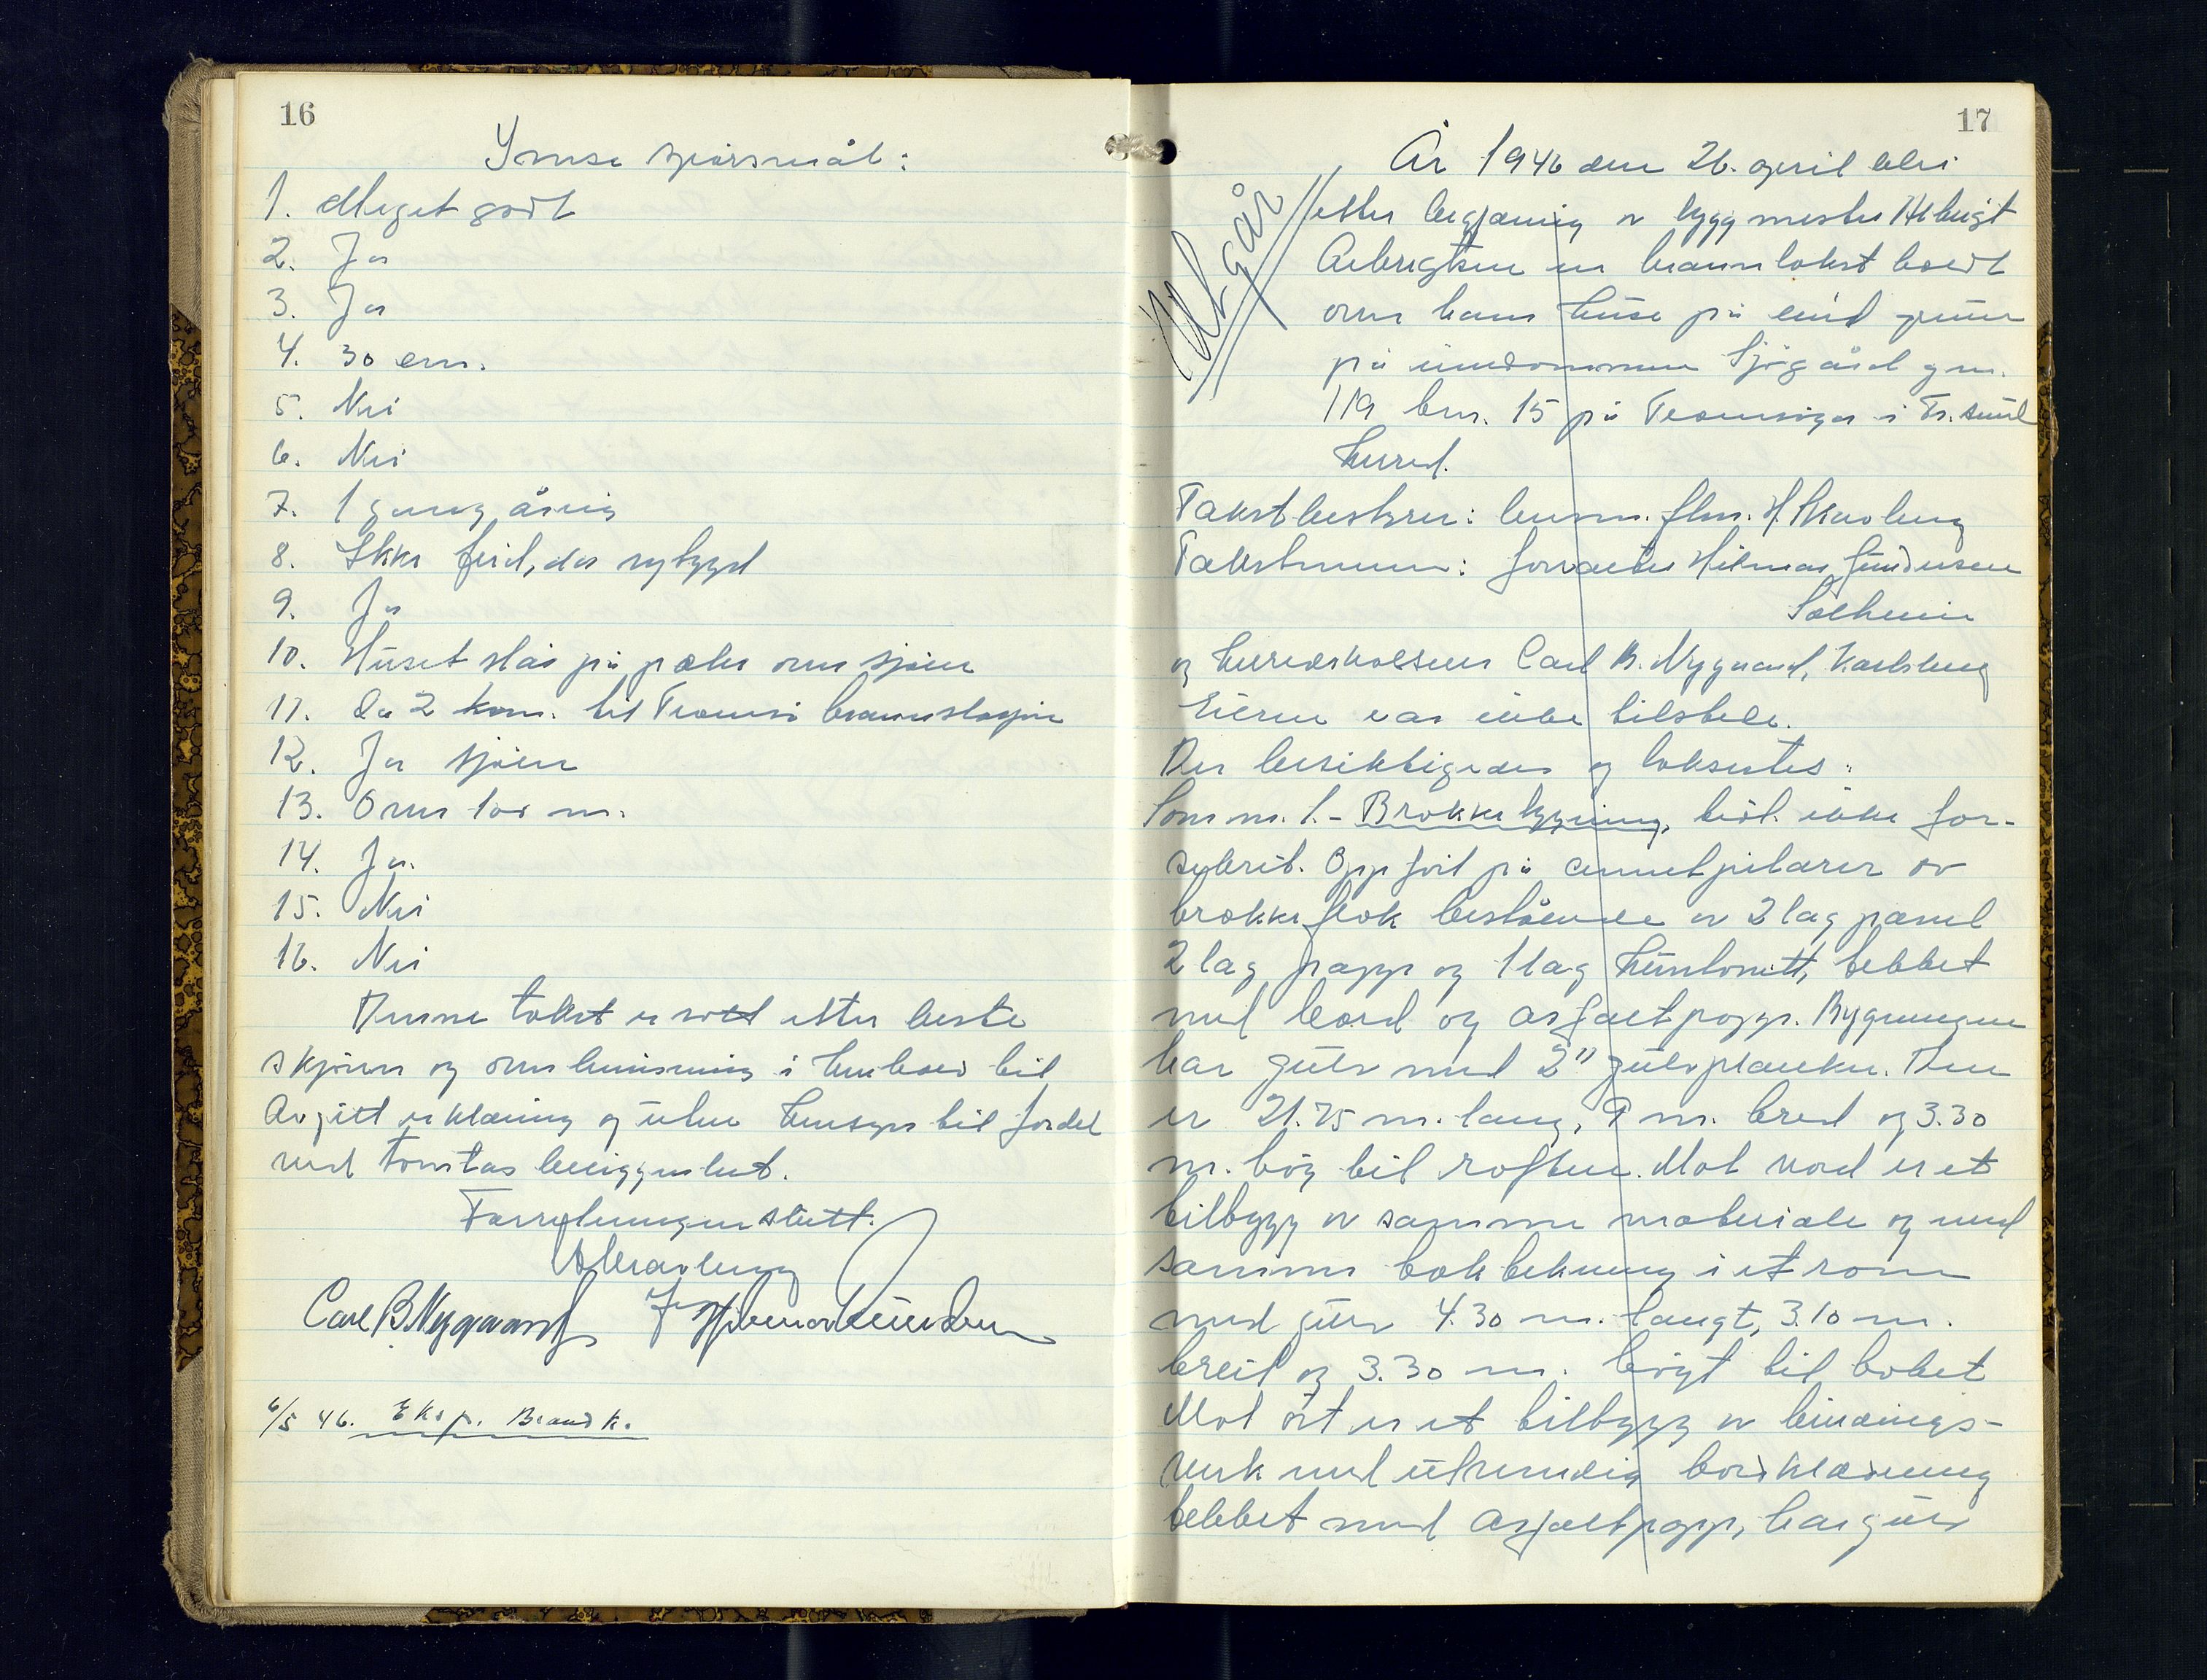 16
Ymse spørsmål:
1. Meget godt
2. Ja
3. Ja
4. 30 cm.
5. Nei
6. Nei
7. 1 gang årlig
8. Ikke feid, da nybygd
9. Ja
10. Huset står på pæler over sjøen
11. Ca 2 km. til Tromsø brannstasjon
12. Ja sjøen
13. Over 100 m.
14. Ja.
15. Nei
16. Nei
Denne takst er satt etter beste
skjønn og overbevisning i henhold til
Avgitt erklæring og uten hensyn til fordel
ved tomtas beliggenhet.
Forretningen slutt.
Carl B. Nygaard Hilmar
6/5 46. Eksp. Brandk.
17
År 1946 den 26. april blei
Utgår
etter begjæring av byggmester Albrigt
Albrigtsen en branntakst holdt
over hans huse på eid grunn
på eiendommen Sjøgård gnr.
119 bnr. 15 på Tromsøya i Ts.sund
herred.
Takstbestyrer: lensm. flm.
Takstmenn: forvalter Hilmar
Solheim
og herredskasserer Carl B. Nygaard, Karlsberg
Eieren var ikke tilstede.
Der besiktigedes og takseertes:
Som nr. 1. - Brakkebygning, tidl. ikke for-
sikrit. Oppført på cementpilarer av
brakkeflak bestående av 2 lag panel
2 lag papp og 1 lag huntonitt, tekket
med bord og asfaltpapp. Bygningen
har gulv med 2" gulvplanker. Den
er 21.75 m. lang, 9 m. bred og 3.30
m. høg til raftene. Mot nord er et
tilbygg av samme materiale og med
samme taktekning i et rom
med gulv 4.30 m. langt, 3.10 m.
breit og 3.30 m. høgt til taket
Mot øst er et tilbygg av bindings-
verk med utvendig bordklædning
tekket med asfaltpapp, har gulv